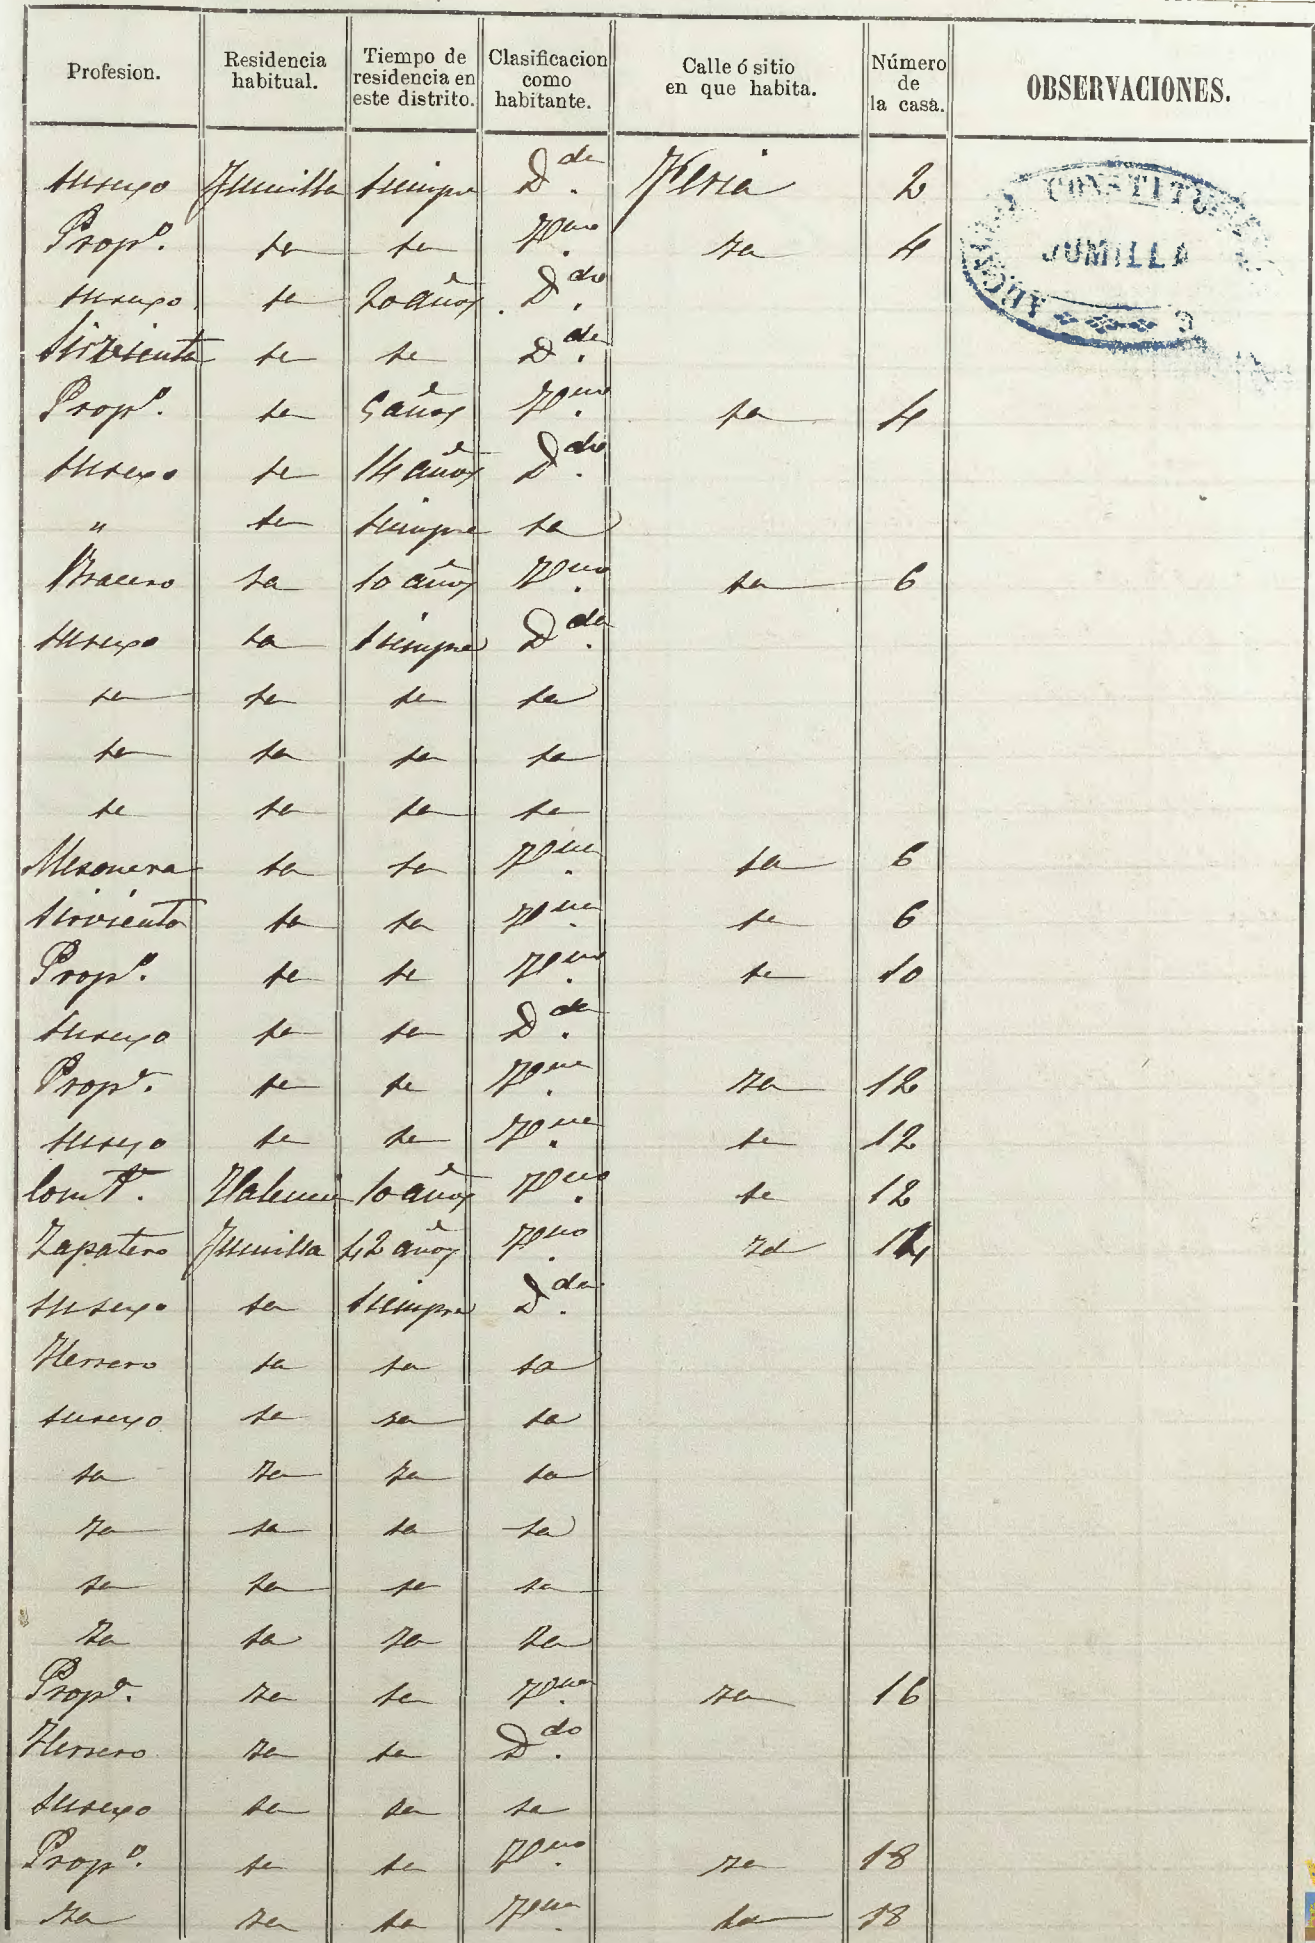 Profesion. Residencia habitual. Tiempo de residencia en este distrito. Clasificacion como habitante. Calle ó sitio en que habita. Número de la casa. OBSERVACIONES.
su sexo Jumilla siempre D.da Feria 2
CONSTITU
JUMILLA
Prop.o id id V.no id 4
su sexo id 20 años D.da
Sirvienta id id D.da
Prop.o id 5 años V.no id 4
su sexo id 14 años D.da
" id siempre id
Bracero id 10 años V.no id 6
su sexo id siempre D.da
id id id id
id id id id
id id id id
Mesonera id id V.na id 6
Sirvienta id id V.na id 6
Prop.o id id V.no id 10
su sexo id id D.da
Prop.a id id V.na id 12
su sexo id id V.na id 12
Com.te Valencia 10 años V.no id 12
Zapatero Jumilla 42 años V.no id 14
su sexo id siempre D.da
Herrero id id id
su sexo id id id
id id id id
id id id id
id id id id
id id id id
Prop.a id id V.na id 16
Herrero id id D.do
su sexo id id id
Prop.o id id V.no id 18
id id id V.na id 18